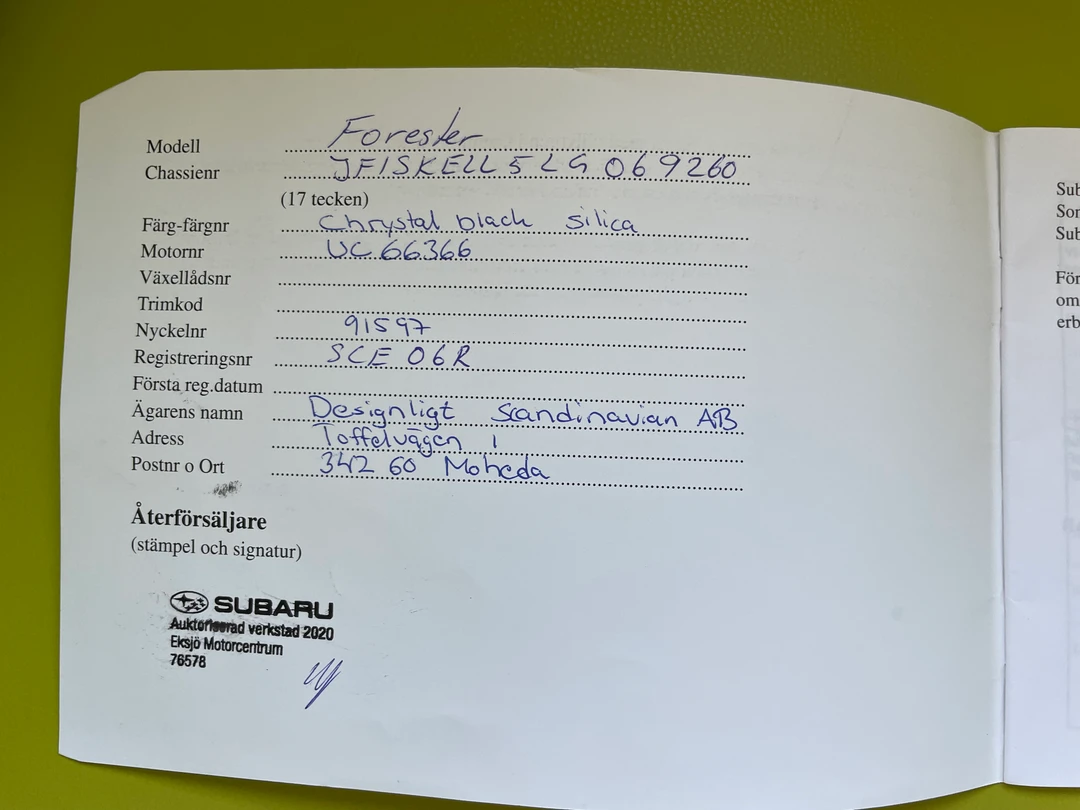 Modell Forester
Chassienr JF1SKELL5LG069260
(17 tecken)
Färg-färgnr Chrystal black silica
Motornr UC66366
Växellådsnr
Trimkod
Nyckelnr 91597
Registreringsnr SCE 06R
Första reg.datum
Ägarens namn Designligt Scandinavian AB
Adress Toffelvägen 1
Postnr o Ort 342 60 Moheda
Återförsäljare
(stämpel och signatur)
SUBARU
Auktoriserad verkstad 2020
Eksjö Motorcentrum
76578
Sub
Son
Sub
För
om
erb